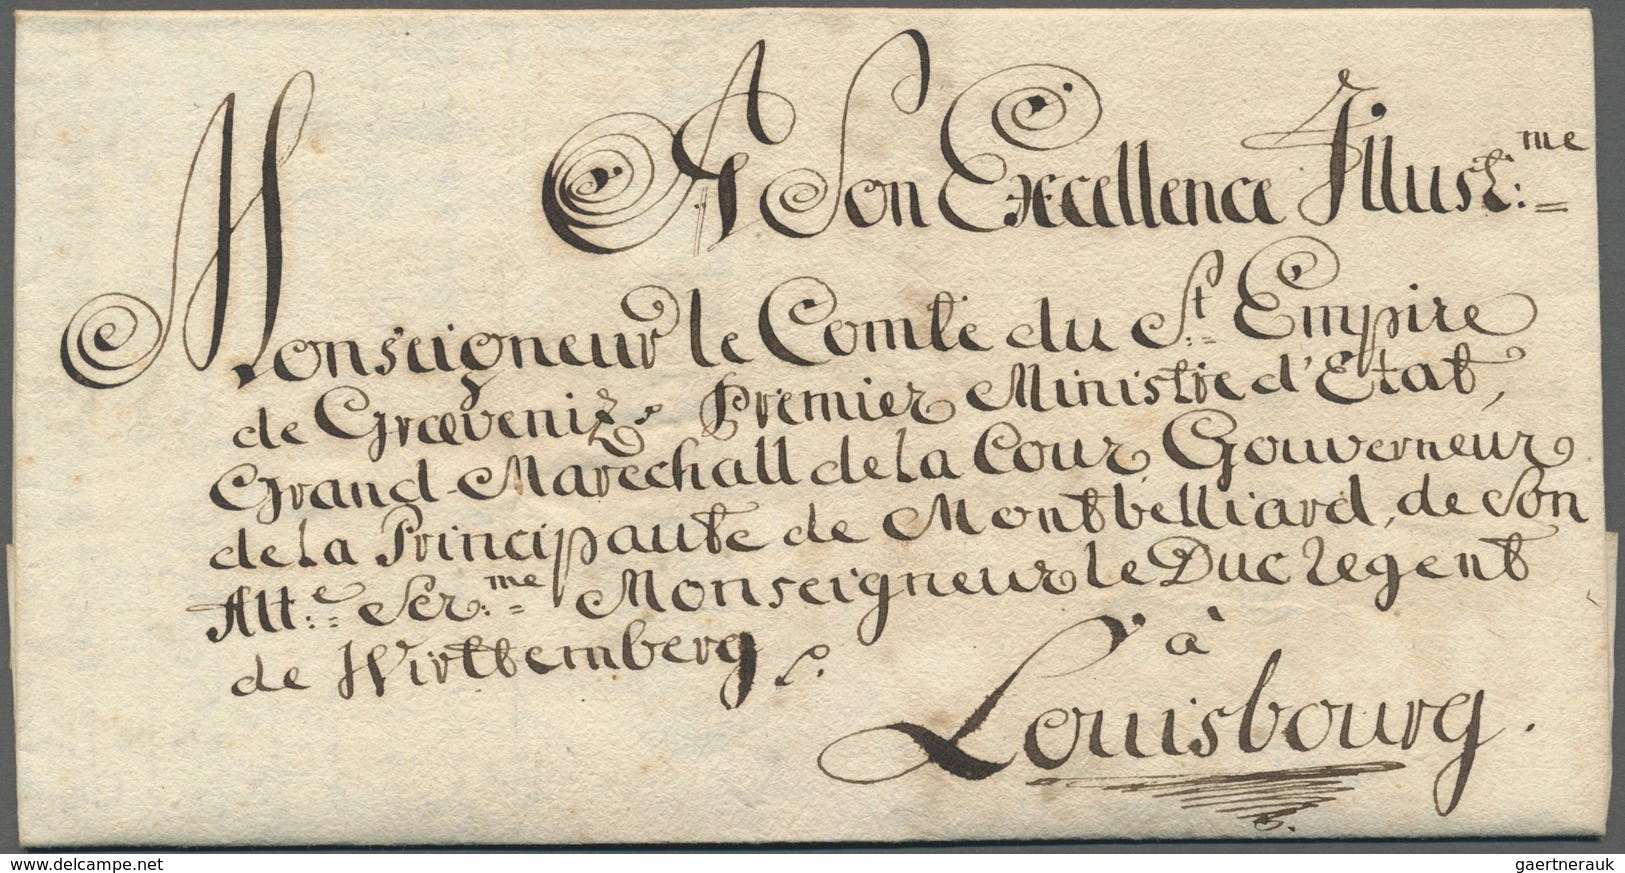 A Son Excellence Illust:me
Monseigneur le Comte du St: Empire
de Græveniz, Premier Ministre d'Etat,
Grand-Marechall de la Cour, Gouverneur
de la Principauté de Montbelliard, de Son
Alt:e Ser:me Monseigneur le Duc regent
de Wirttemberg
à
Louisbourg.
www.delcampe.net
gaertnerauk